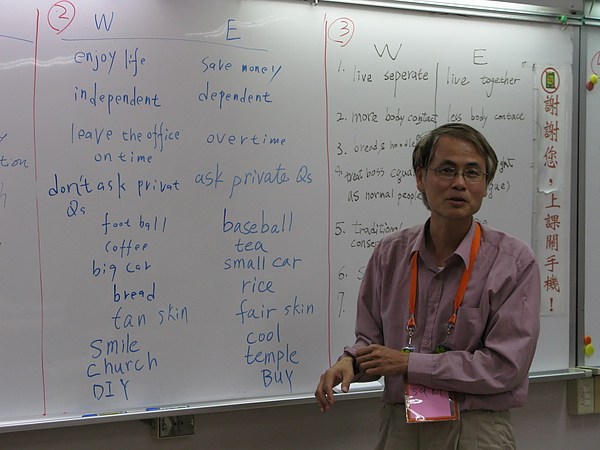 ②
W E
enjoy life save money
independent dependent
leave the office overtime
on time
don't ask privat ask private Qs
Qs
football baseball
coffee tea
big car small car
bread rice
tan skin fair skin
smile cool
church temple
DIY BUY
③
W E
1. live seperate live together
2. more body contact less body contact
3. bread &
4. treat boss
as normal people
5.
6.
7.
謝謝您，上課關手機！